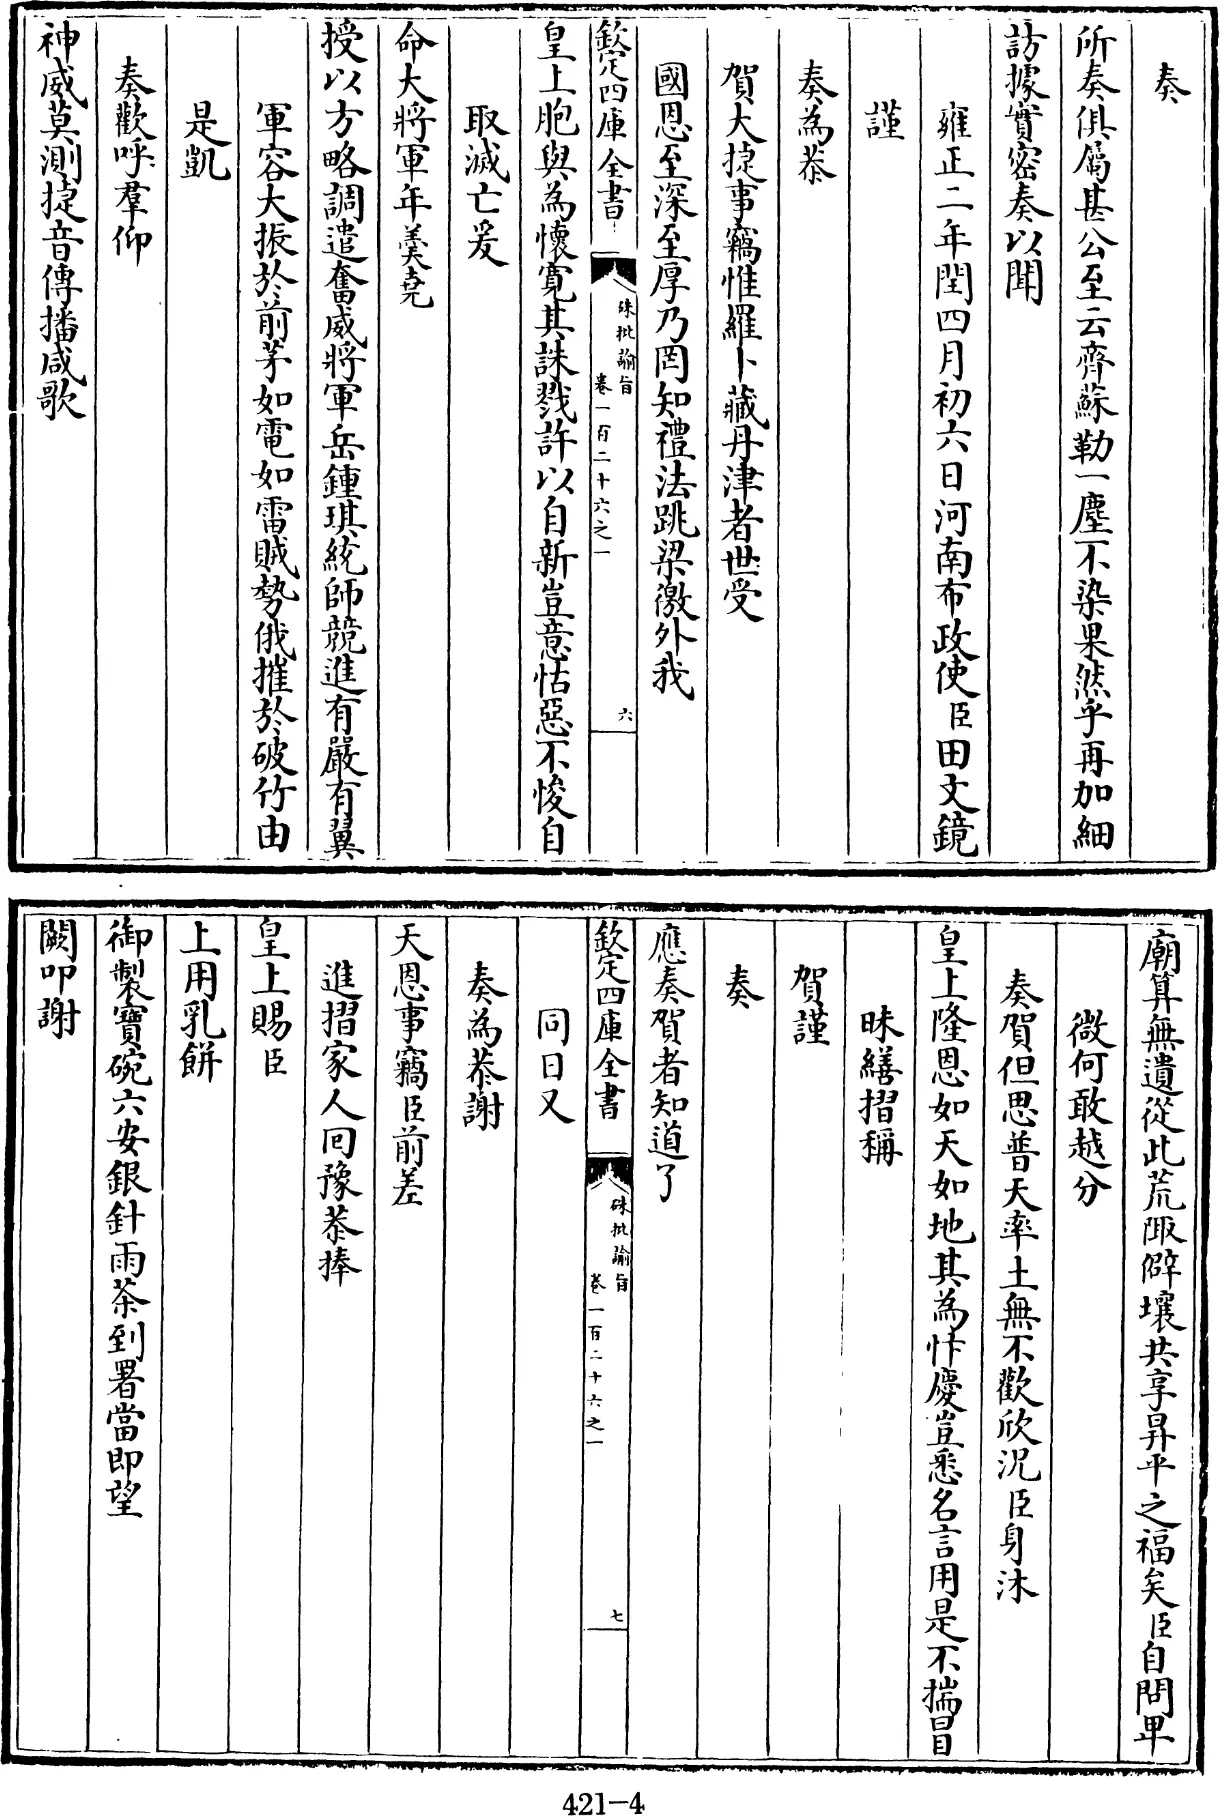 奏
所奏俱屬甚公至云齊蘇勒一塵不染果然乎再加細
訪據實密奏以聞
雍正二年閏四月初六日河南布政使臣田文鏡
謹
奏為恭
賀大捷事竊惟羅卜藏丹津者世受
國恩至深至厚乃罔知禮法跳梁徼外我
欽定四庫全書
硃批諭旨
卷一百二十六之一
六
皇上胞與為懷寛其誅戮許以自新豈意怙惡不悛自
取滅亡爰
命大將軍年羮堯
授以方略調遣奮威將軍岳鍾琪統師競進有嚴有翼
軍容大振於前茅如電如雷賊勢俄摧於破竹由
是凱
奏歡呼羣仰
神威莫測捷音傳播咸歌
廟算無遺從此荒陬僻壤共享昇平之福矣臣自問卑
微何敢越分
奏賀但思普天率土無不歡欣況臣身沐
皇上隆恩如天如地其為忭慶豈悉名言用是不揣冒
昧繕摺稱
賀謹
奏
應奏賀者知道了
欽定四庫全書
硃批諭旨
卷一百二十六之一
七
同日又
奏為恭謝
天恩事竊臣前差
進摺家人囘豫恭捧
皇上賜臣
上用乳餅
御製寶碗六安銀針雨茶到署當即望
闕叩謝
421-4